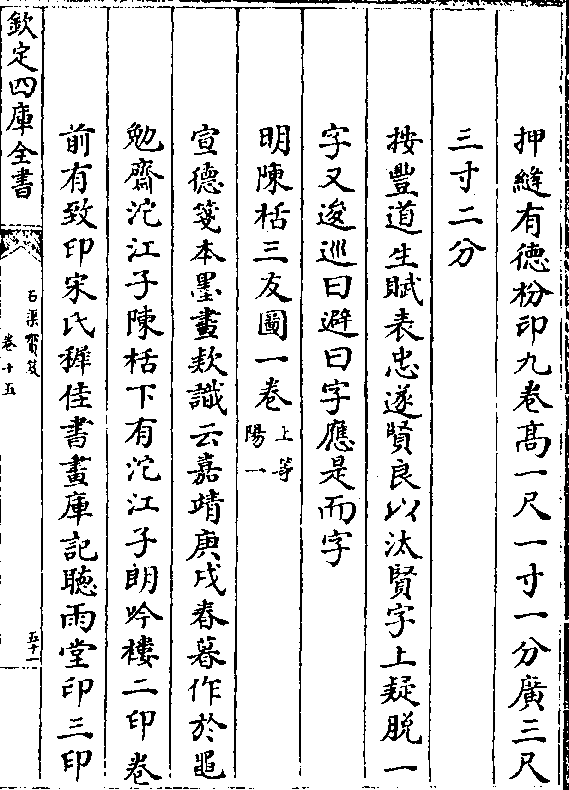 押縫有德枌印九卷髙一尺一寸一分廣三尺
三寸二分
按豐道生賦表忠遂賢良以汰賢字上疑脱一
字又逡巡曰避曰字應是而字
明陳栝三友圖一卷 上等
陽一
宣德箋本墨畫欵識云嘉靖庚戌春暮作於黽
勉齋沱江子陳栝下有沱江子朗吟樓二印卷
前有致印宋氏穉佳書畫庫記聽雨堂印三印
欽定四庫全書
石渠寳笈
卷十五
五十一